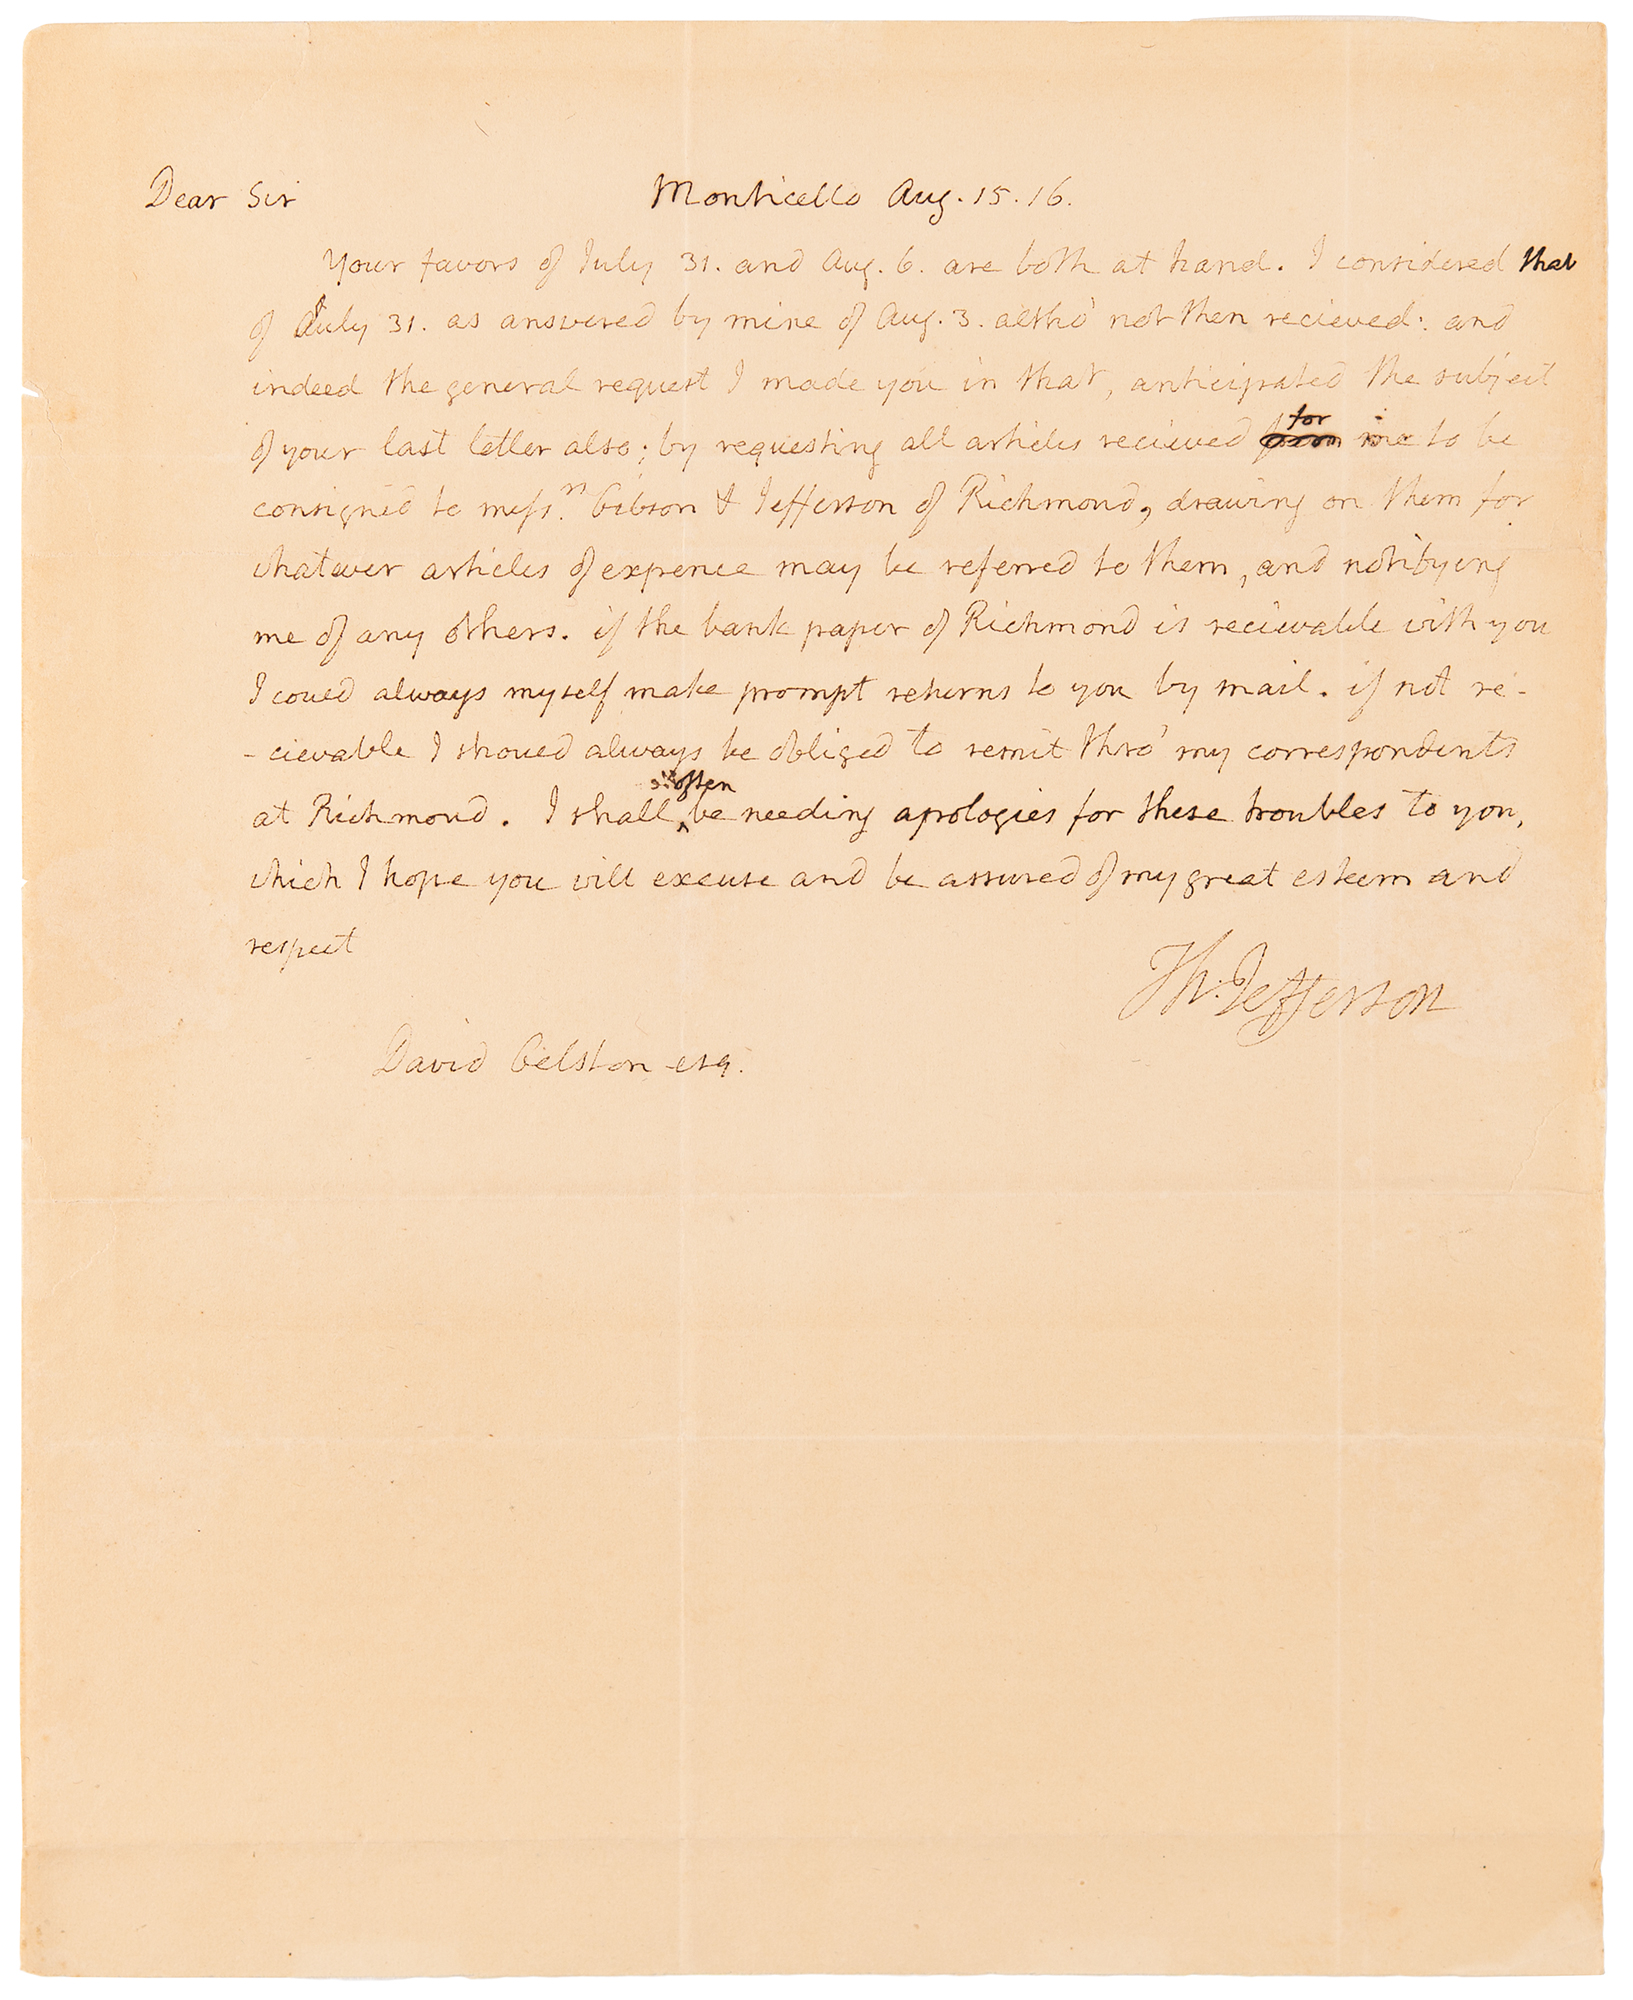 Dear Sir Monticello Aug. 15. 16.
Your favors of July 31. and Aug. 6. are both at hand. I considered that
of July 31. as answered by mine of Aug. 3. altho' not then recieved: and
indeed the general request I made you in that, anticipated the subject
of your last letter also; by requesting all articles recieved for me to be
consigned to mess.rs Gibson & Jefferson of Richmond, drawing on them for
whatever articles of expence may be referred to them, and notifying
me of any others. if the bank paper of Richmond is recievable with you
I could always myself make prompt returns to you by mail. if not re-
-cievable I should always be obliged to remit thro' my correspondents
at Richmond. I shall often be needing apologies for these troubles to you,
which I hope you will excuse and be assured of my great esteem and
respect
Th: Jefferson
David Gelston esq.